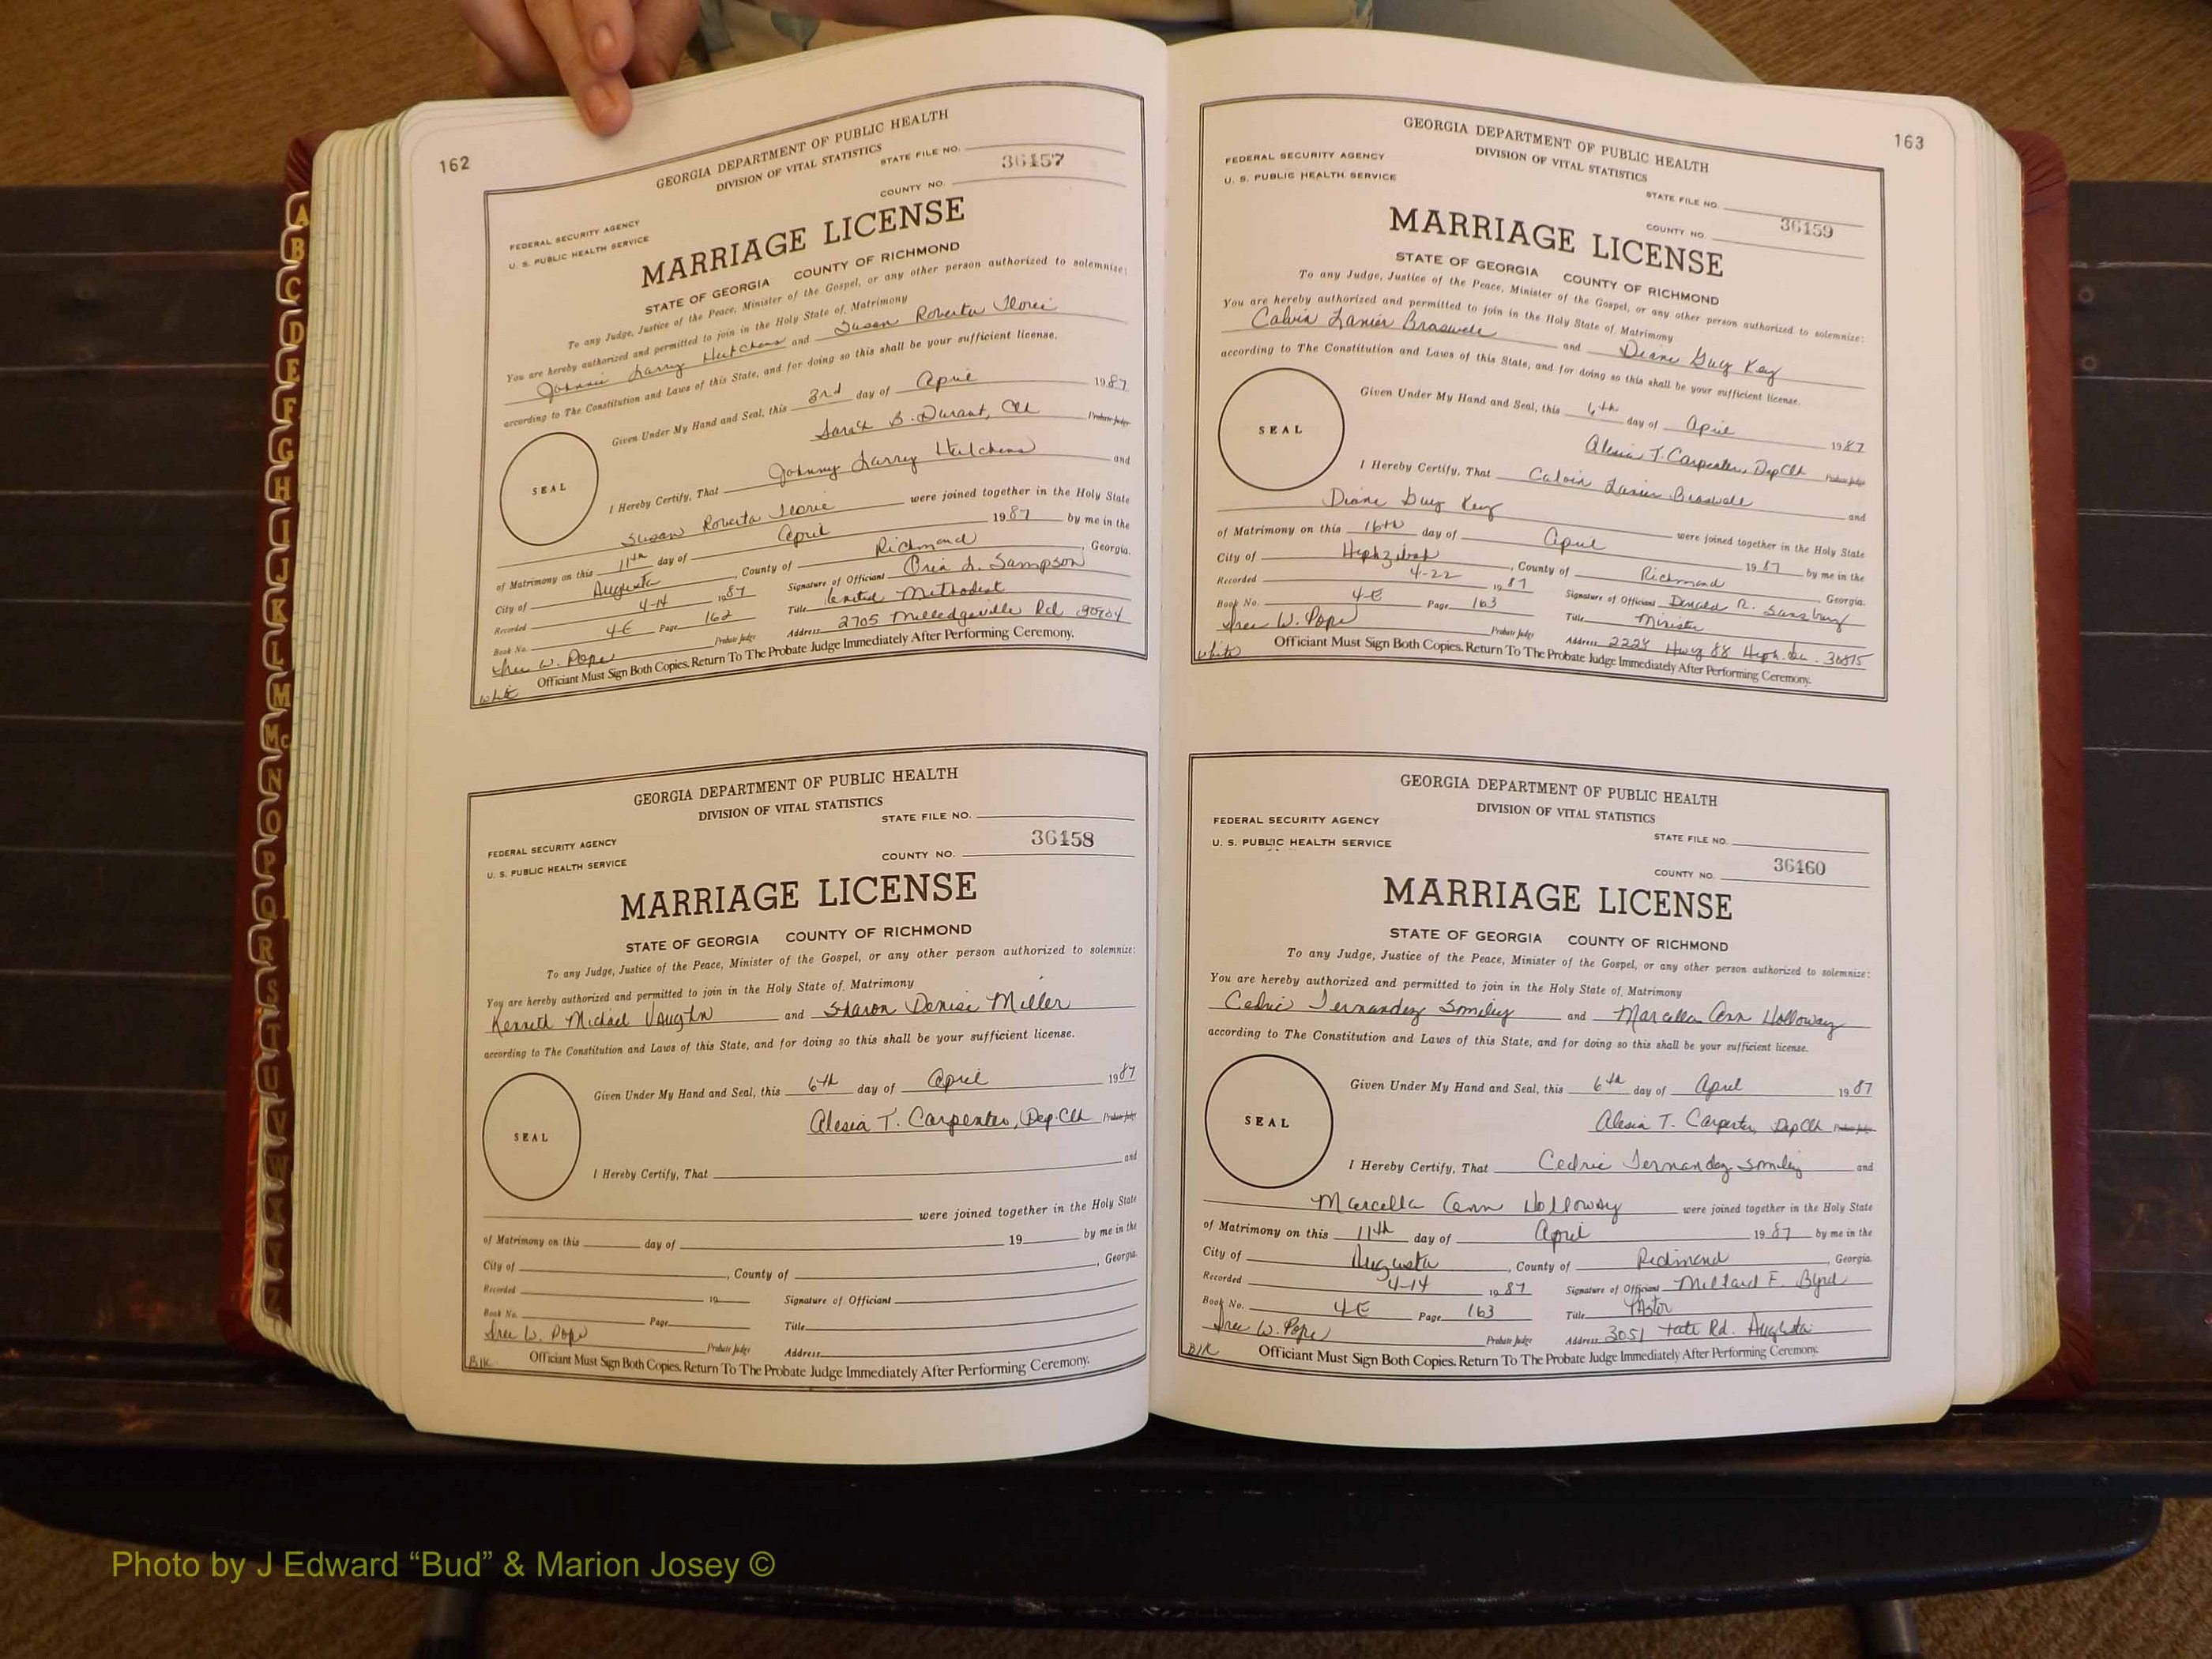 162
GEORGIA DEPARTMENT OF PUBLIC HEALTH
DIVISION OF VITAL STATISTICS
STATE FILE NO.
36157
COUNTY NO.
FEDERAL SECURITY AGENCY
U. S. PUBLIC HEALTH SERVICE
MARRIAGE LICENSE
STATE OF GEORGIA COUNTY OF RICHMOND
To any Judge, Justice of the Peace, Minister of the Gospel, or any other person authorized to solemnize:
You are hereby authorized and permitted to join in the Holy State of Matrimony
Johnnie Larry Hutchens and Susan Roberta
according to The Constitution and Laws of this State, and for doing so this shall be your sufficient license.
Given Under My Hand and Seal, this 3rd day of April 1987
Sarah B. Durant, Clk Probate Judge
SEAL
I Hereby Certify, That Johnny Larry Hutchens and
Susan Roberta were joined together in the Holy State
of Matrimony on this 11th day of April 1987 by me in the
City of Augusta, County of Richmond, Georgia.
Recorded 4-14 1987 Signature of Official Oria L. Sampson
Book No. 4-E Page 162 Title United Methodist
W. Pope Probate Judge Address 2705 Milledgeville Rd 30904
White Officiant Must Sign Both Copies. Return To The Probate Judge Immediately After Performing Ceremony.
GEORGIA DEPARTMENT OF PUBLIC HEALTH
DIVISION OF VITAL STATISTICS
STATE FILE NO.
36158
FEDERAL SECURITY AGENCY
COUNTY NO.
U. S. PUBLIC HEALTH SERVICE
MARRIAGE LICENSE
STATE OF GEORGIA COUNTY OF RICHMOND
To any Judge, Justice of the Peace, Minister of the Gospel, or any other person authorized to solemnize:
You are hereby authorized and permitted to join in the Holy State of Matrimony
Kenneth Michael Vaughn and Sharon Denise Miller
according to The Constitution and Laws of this State, and for doing so this shall be your sufficient license.
Given Under My Hand and Seal, this 6th day of April 1987
Alesia T. Carpenter, Dep. Clk Probate Judge
SEAL
I Hereby Certify, That and
were joined together in the Holy State
of Matrimony on this day of 19 by me in the
City of , County of , Georgia.
Recorded 19 Signature of Official
Book No. Page Title
W. Pope Probate Judge Address
Blk Officiant Must Sign Both Copies. Return To The Probate Judge Immediately After Performing Ceremony.
163
GEORGIA DEPARTMENT OF PUBLIC HEALTH
DIVISION OF VITAL STATISTICS
FEDERAL SECURITY AGENCY
U. S. PUBLIC HEALTH SERVICE
STATE FILE NO.
36159
COUNTY NO.
MARRIAGE LICENSE
STATE OF GEORGIA COUNTY OF RICHMOND
To any Judge, Justice of the Peace, Minister of the Gospel, or any other person authorized to solemnize:
You are hereby authorized and permitted to join in the Holy State of Matrimony
Calvin Lanier Braswell and Diane Guy Key
according to The Constitution and Laws of this State, and for doing so this shall be your sufficient license.
Given Under My Hand and Seal, this 6th day of April 1987
Alesia T. Carpenter, Dep Clk Probate Judge
SEAL
I Hereby Certify, That Calvin Lanier Braswell and
Diane Guy Key were joined together in the Holy State
of Matrimony on this 16th day of April 1987 by me in the
City of Hephzibah, County of Richmond, Georgia.
Recorded 4-22 1987 Signature of Official Donald R. Sansbury
Book No. 4-E Page 163 Title Minister
W. Pope Probate Judge Address 2228 Hwy 88 Heph. Ga. 30815
White Officiant Must Sign Both Copies. Return To The Probate Judge Immediately After Performing Ceremony.
GEORGIA DEPARTMENT OF PUBLIC HEALTH
DIVISION OF VITAL STATISTICS
FEDERAL SECURITY AGENCY
U. S. PUBLIC HEALTH SERVICE
STATE FILE NO.
36160
COUNTY NO.
MARRIAGE LICENSE
STATE OF GEORGIA COUNTY OF RICHMOND
To any Judge, Justice of the Peace, Minister of the Gospel, or any other person authorized to solemnize:
You are hereby authorized and permitted to join in the Holy State of Matrimony
Cedric Fernandez Smiley and Marcella Ann Holloway
according to The Constitution and Laws of this State, and for doing so this shall be your sufficient license.
Given Under My Hand and Seal, this 6th day of April 1987
Alesia T. Carpenter, Dep Clk Probate Judge
SEAL
I Hereby Certify, That Cedric Fernandez Smiley and
Marcella Ann Holloway were joined together in the Holy State
of Matrimony on this 11th day of April 1987 by me in the
City of Augusta, County of Richmond, Georgia.
Recorded 4-14 1987 Signature of Official Millard F. Byrd
Book No. 4-E Page 163 Title Pastor
W. Pope Probate Judge Address 3051 Tate Rd. Augusta
Blk Officiant Must Sign Both Copies. Return To The Probate Judge Immediately After Performing Ceremony.
A
B
C
D
E
F
G
H
I
J
K
L
M
Mc
N
O
P
Q
R
S
T
U
V
W
Photo by J Edward “Bud” & Marion Josey ©